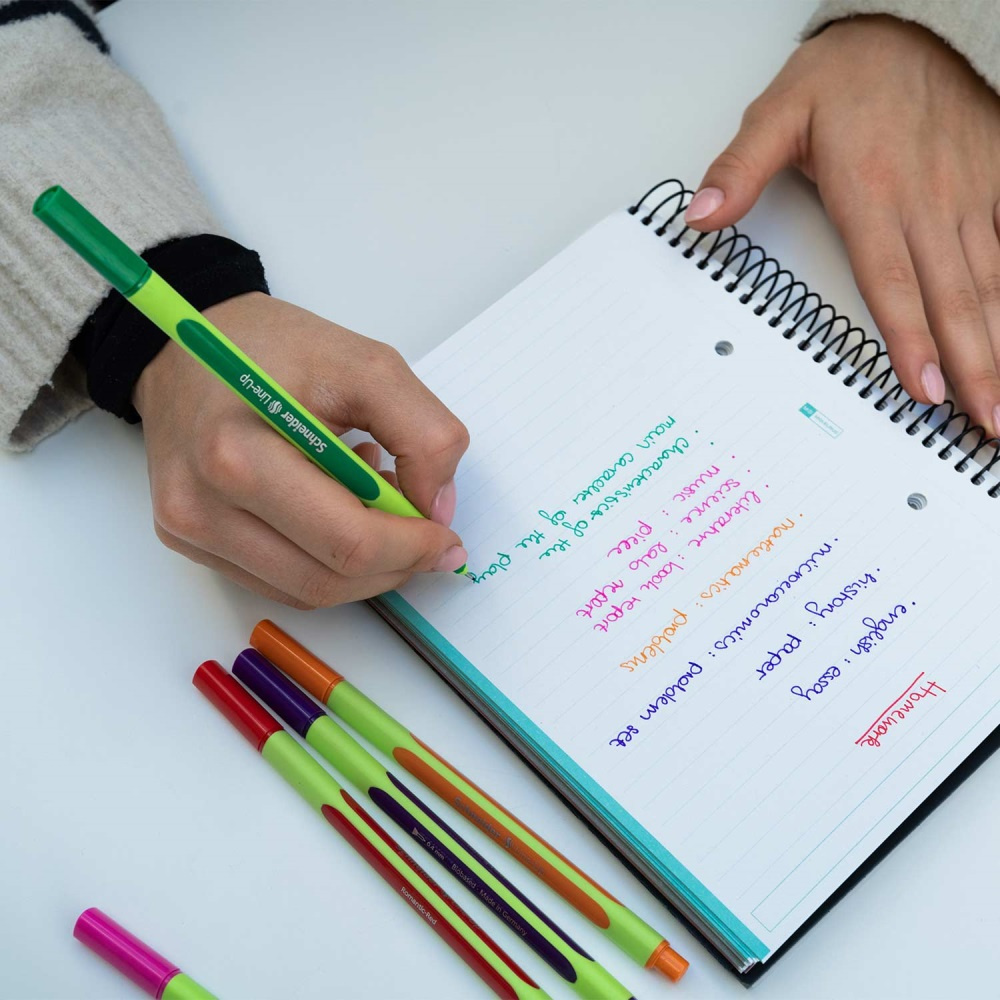 Homework
• english : essay
• history : paper
• microeconomics : problem set
• mathematics : problems
• literature : book report
science : lab report
• music : piece
• characteristics of the
main caracter of the play
Schneider Line-Up
0.4 mm Biobased Made in Germany
Romantic-Red